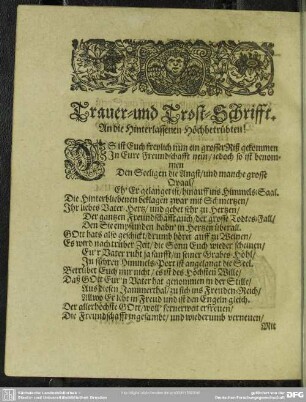 Trauer-und Trost-Schrifft.
An die Hinterlassenen Hochbetrübten!
ES ist Euch freylich nun ein grosser Riß gekommen
In Eure Freundschafft nun/ jedoch so ist benom-
men
Den Seeligen die Angst/ und manche grosse
Qvaal/
Eh' Er gelanget ist hinauff ins Himmels-Saal.
Die Hinterbliebenen beklagen zwar mit Schmertzen/
Ihr liebes Vater-Hertz/ und geht ihr zu Hertzen/
Der gantzen Freundschafft auch der grosse Todtes-Fall/
Den Sie empfunden hab'n im Hertzen überall.
GOtt hats also geschickt/ drumb höret auff zu Weinen/
Es wird nach trüber Zeit/ die Sonn Euch wieder scheinen/
Eu'r Vater ruht ja sanfft/ in seiner Grabes-Höhl/
In sichren Himmels-Port ist angelangt die Seel.
Betrübet Euch nur nicht/ es ist des Höchsten Wille/
Daß GOtt Eu'n Vater hat genommen in der Stille/
Aus diesen Jammerthal/ zu sich ins Freuden-Reich/
Allwo Er lebt in Freud und ist den Engeln gleich.
Der allerhöchste GOtt/ woll' ferner weit erfreuen/
Die Freundschafft ingesambt/ und wiederumb verneuen/
Mit